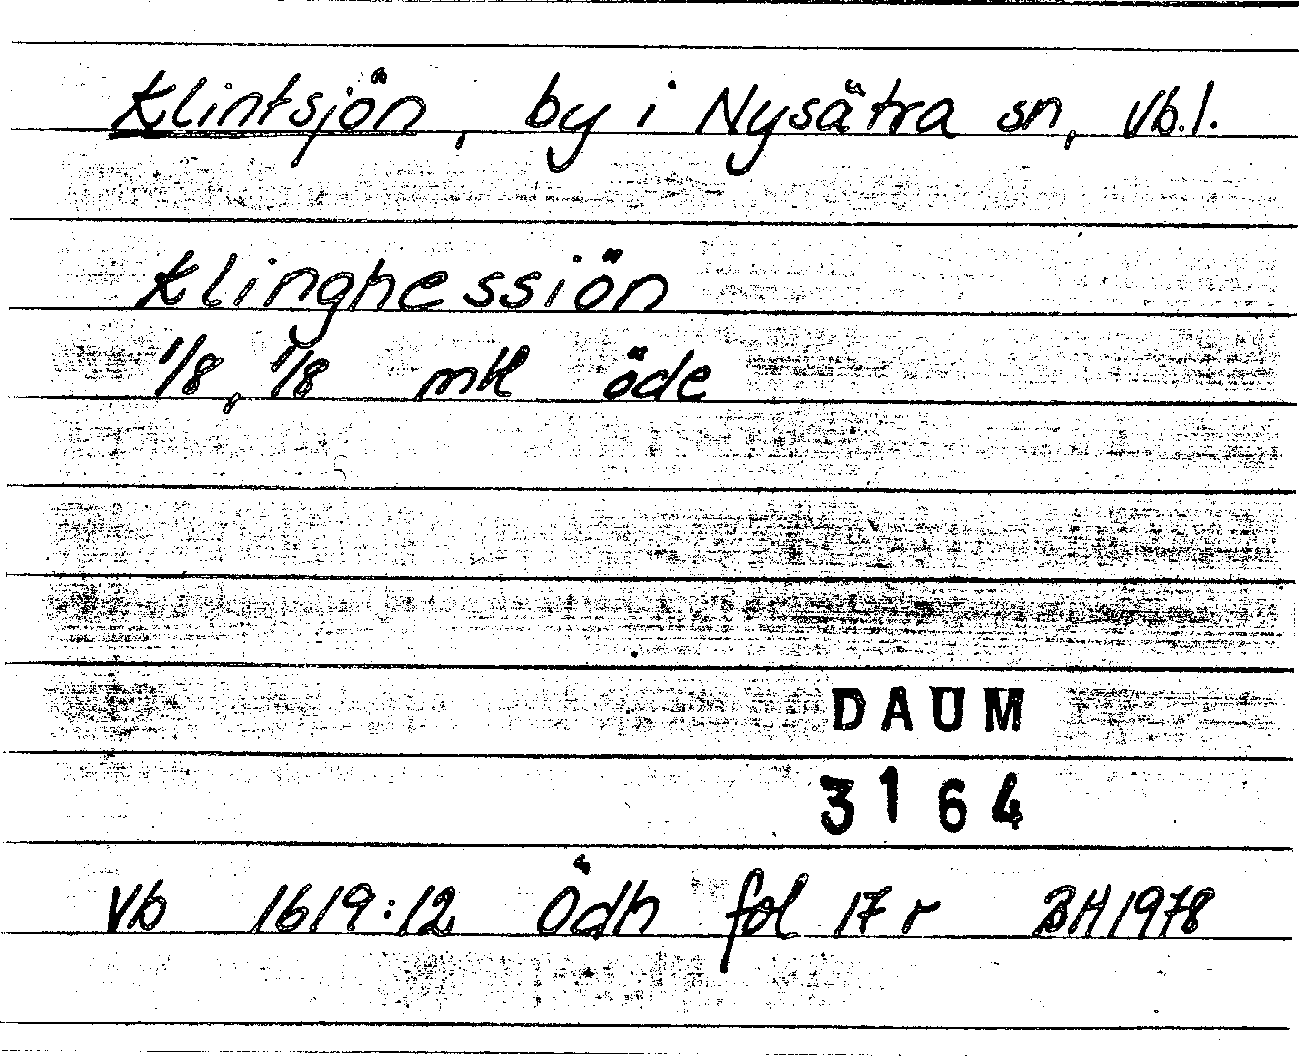 Klintsjön, by i Nysätra sn, Vb.l.
Klinghessiön
1/8, 1/8 mkl öde
DAUM
3164
Vb 1619:12 Ödh fol 17 r BH 1978